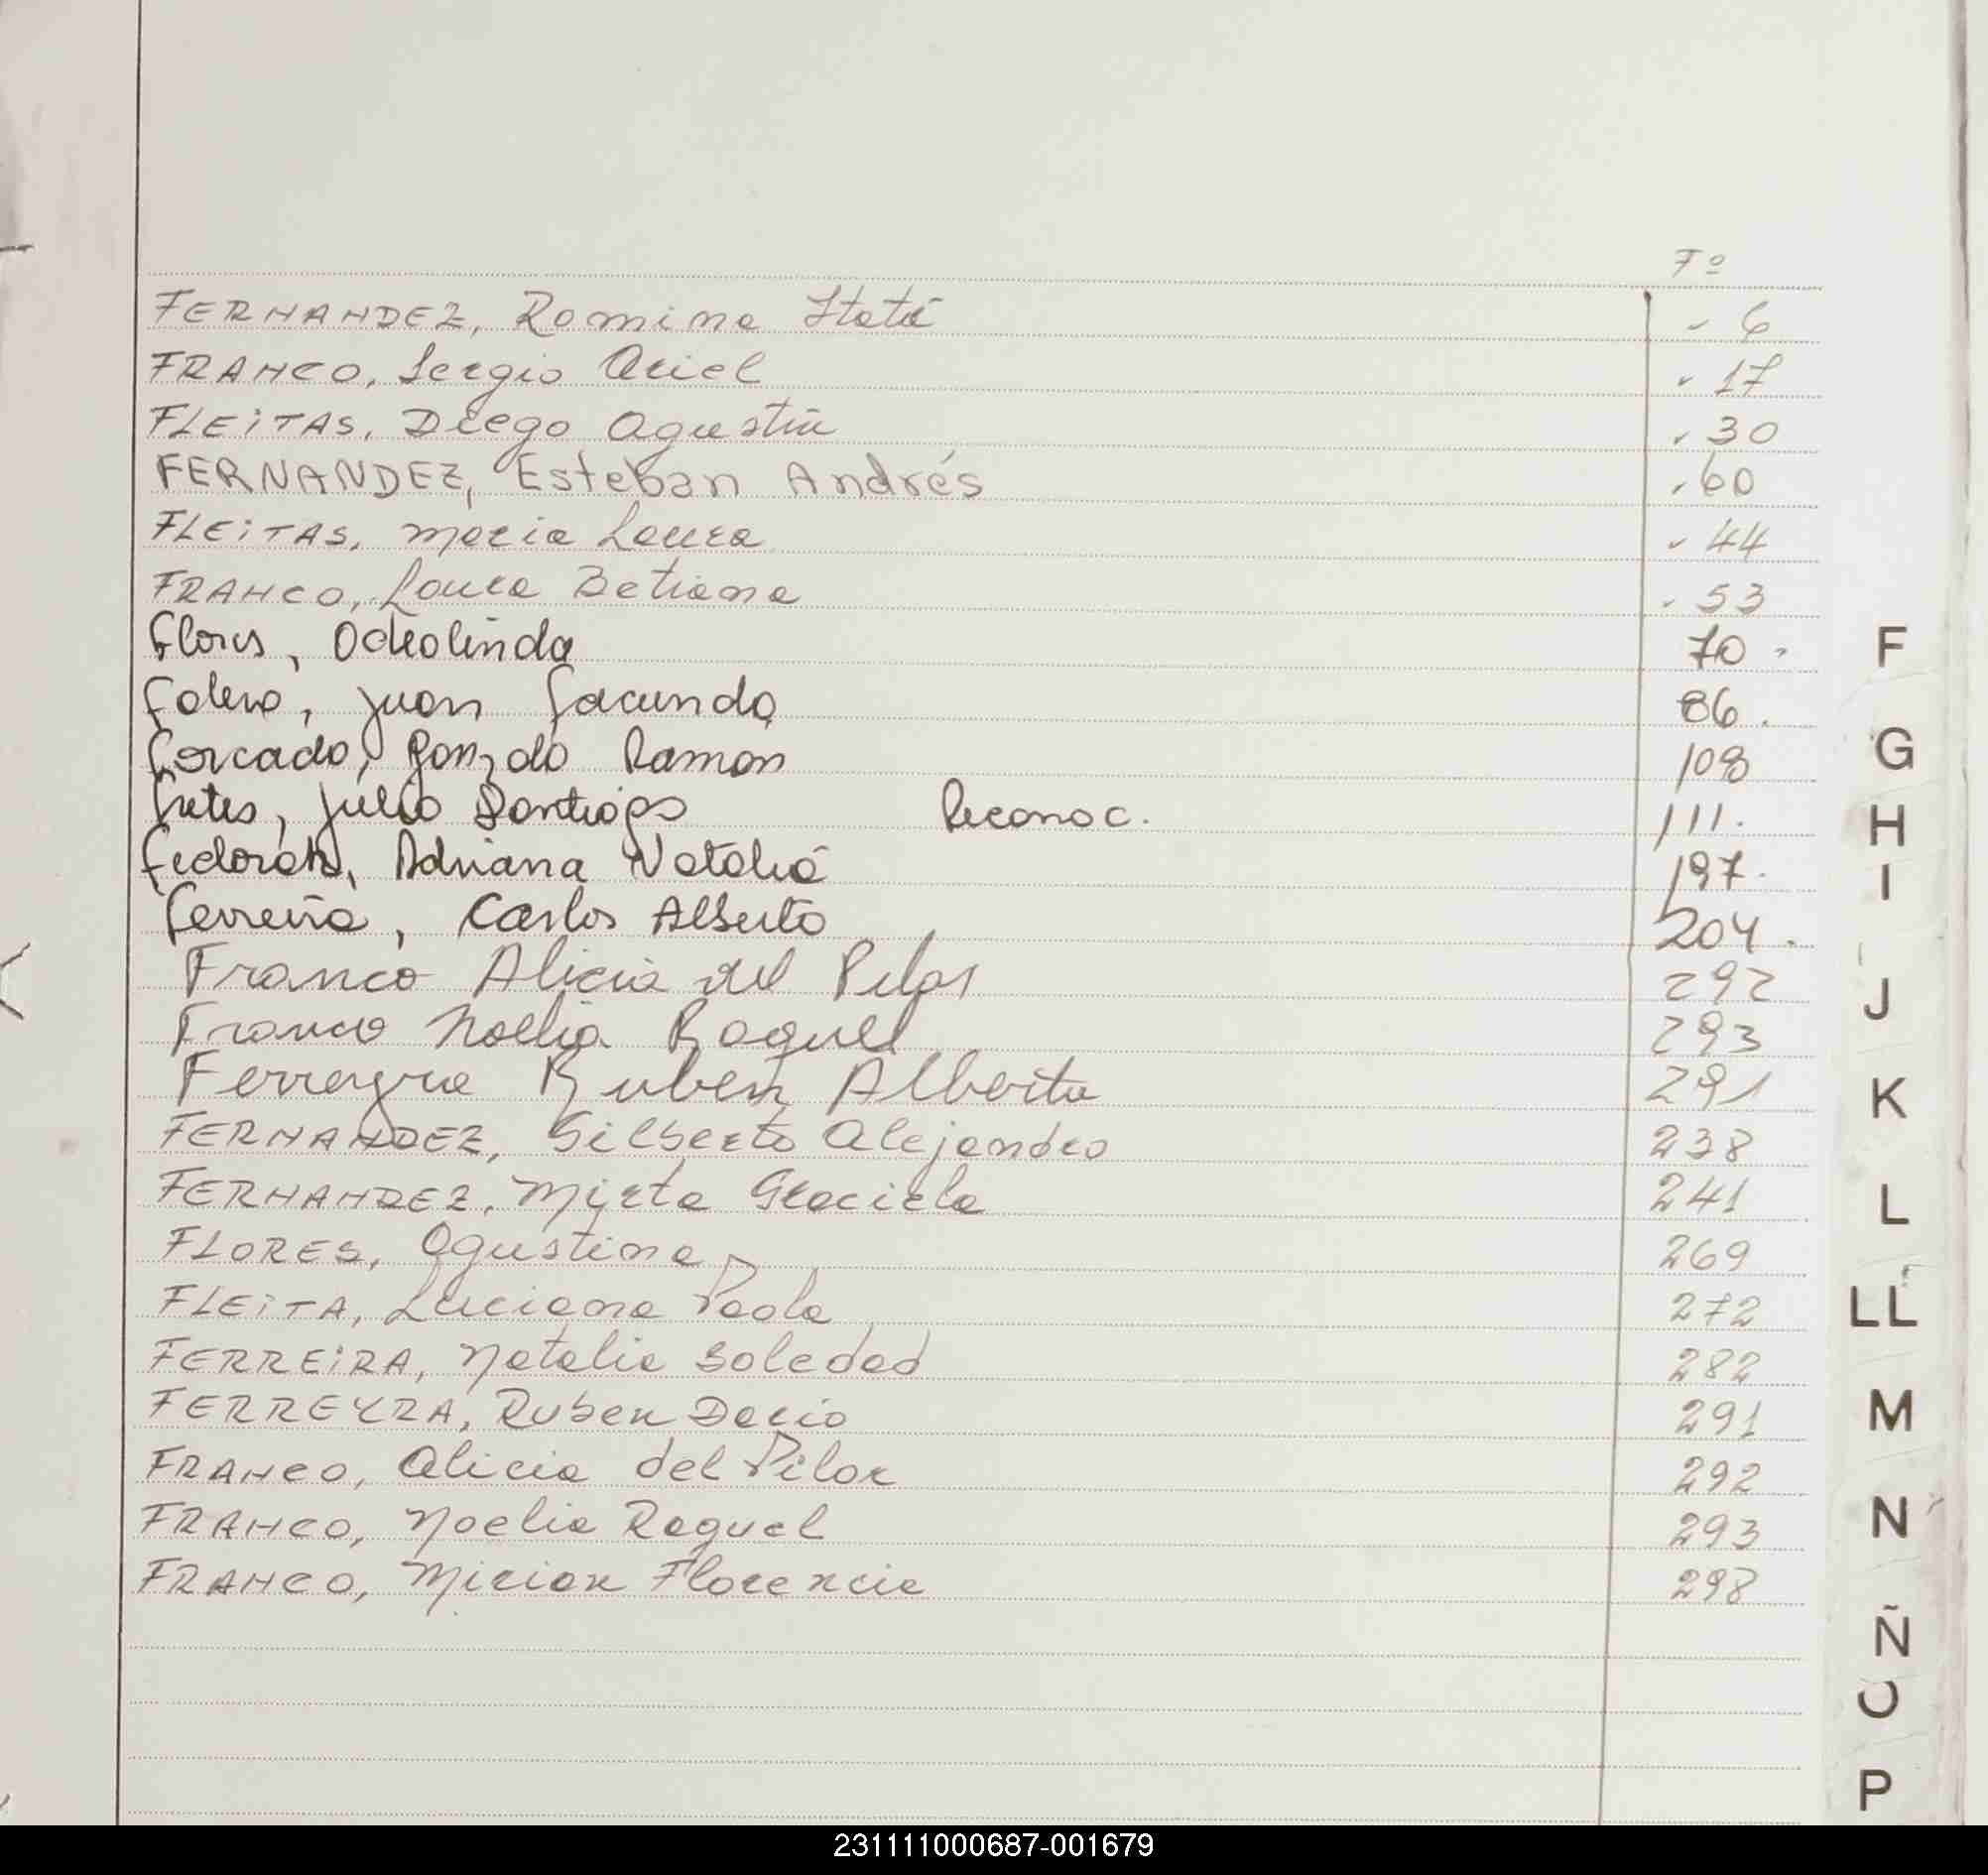 Fº
FERNANDEZ, Romina Itatí 6
FRANCO, Sergio Ariel 17
FLEITAS, Diego Agustín 30
FERNANDEZ, Esteban Andrés 60
FLEITAS, Maria Laura 44
FRANCO, Laura Betiana 53
Flores, Odeolinda 70
Falero, Juan Facundo 86.
Forcado, Gonzalo Ramon 108
Fretes, Julio Santiago Reconoc. 111.
Adriana Natalia 197.
Ferreira, Carlos Alberto 204.
Franco Alicia del Pilar 292
Franco Noelia Raquel 293
Ferreyra Ruben Alberto 291
FERNANDEZ, Gilberto Alejandro 238
FERNANDEZ, Mirta Graciela 241
FLORES, Agustina 269
FLEITA, Luciana Paola 272
FERREIRA, Natalia Soledad 282
FERREYRA, Ruben Dario 291
FRANCO, Alicia del Pilar 292
FRANCO, Noelia Raquel 293
FRANCO, Mirian Florencia 298
F
G
H
I
J
K
L
LL
M
N
Ñ
O
P
231111000687-001679